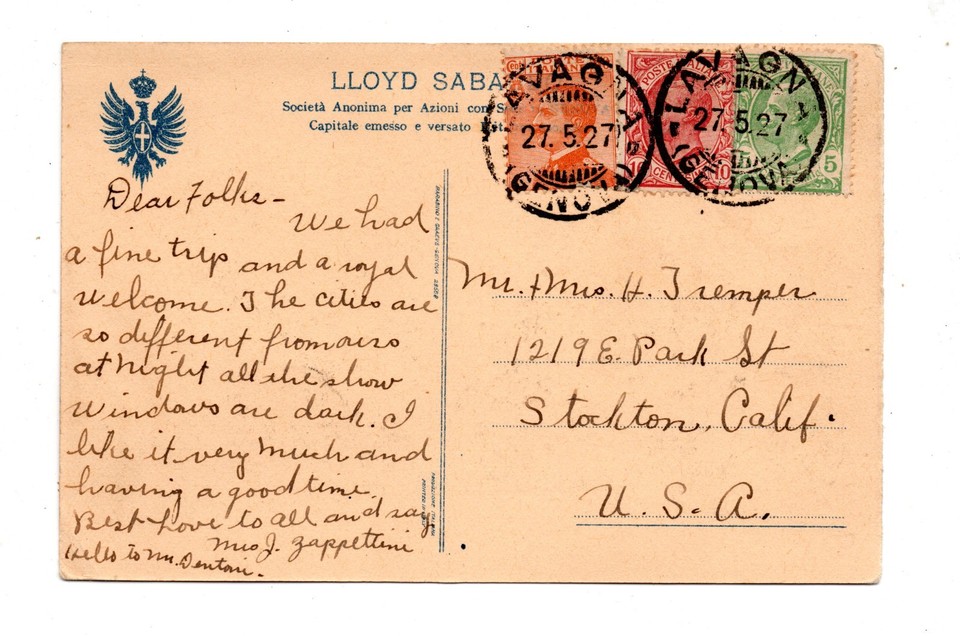 LLOYD SABA
Società Anonima per Azioni con
Capitale emesso e versato
LAVAGNA
27.5.27
(GENOVA)
LAVAGNA
27.5.27
(GENOVA)
POSTE ITALIANE
10 CENTESIMI 10
5
Dear Folks -
We had
a fine trip and a royal
welcome. The cities are
so different from ours
at night all the show
windows are dark. I
like it very much and
having a good time.
Best love to all and say
Hello to Mr. Dentoni.
Mrs J. Zappettini
Mr. & Mrs. H. Tremper
1219 E. Park St
Stockton, Calif.
U.S.A.